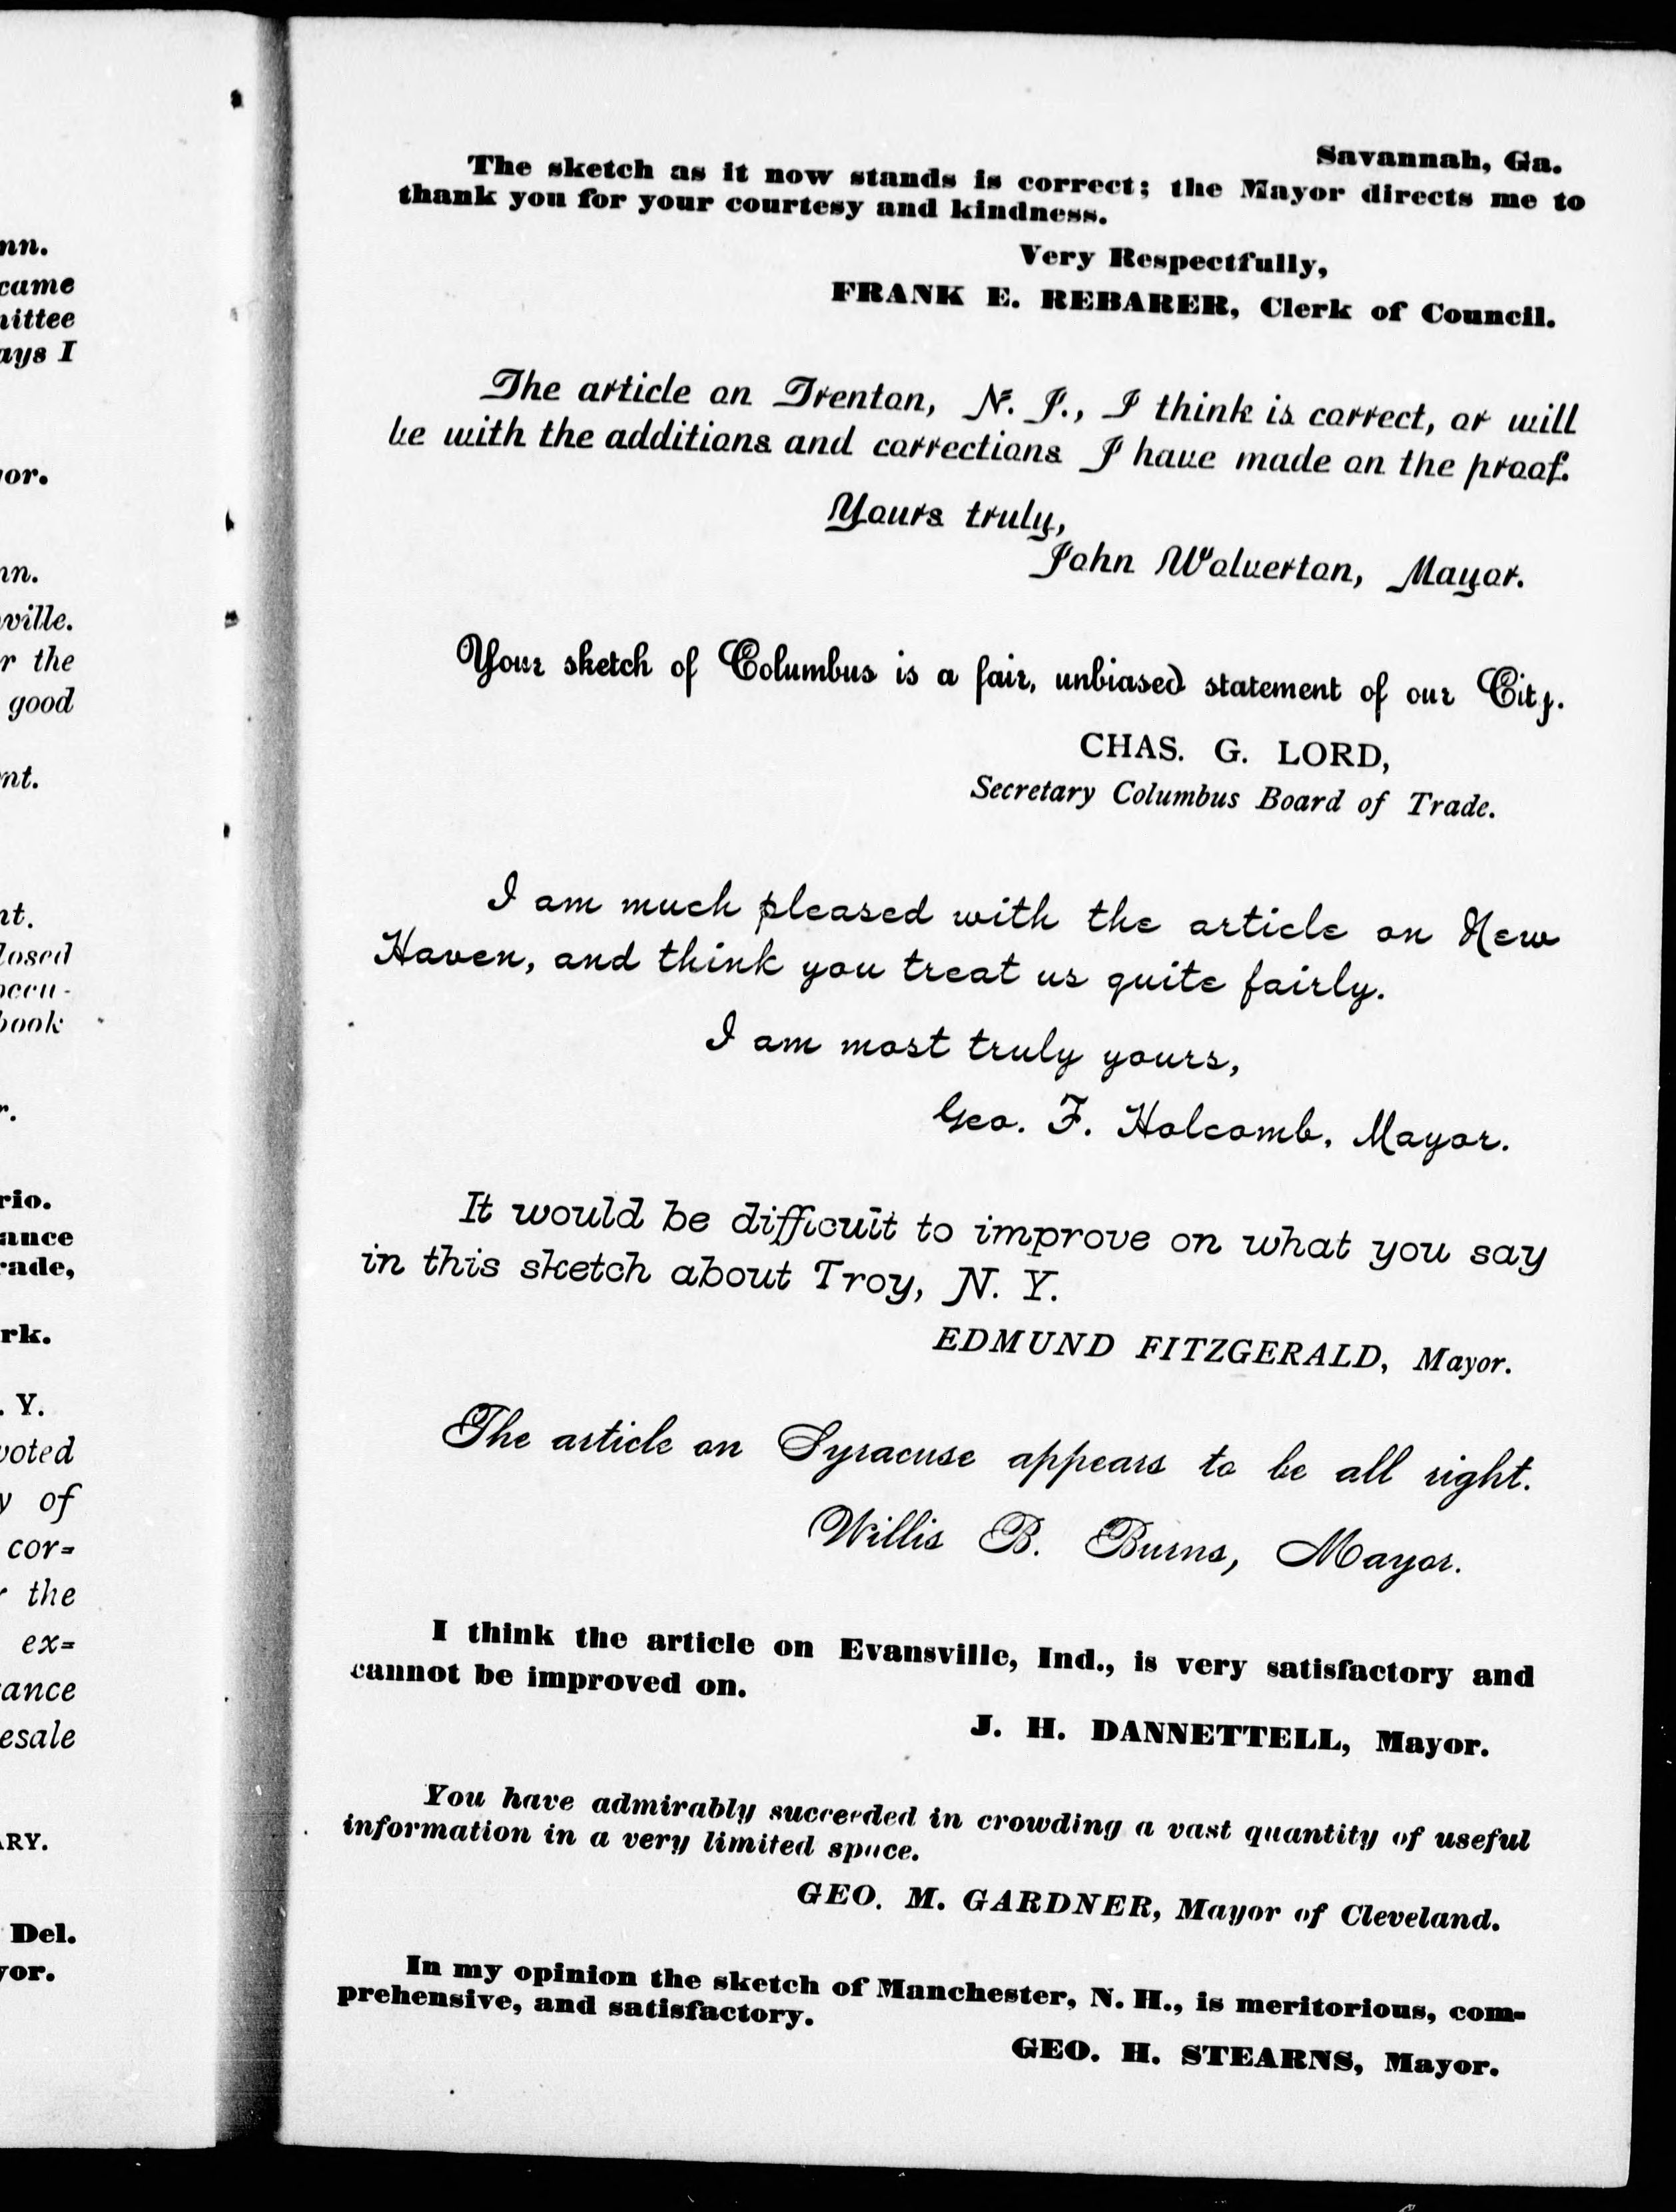 nn.
came
mittee
ays I
or.
nn.
ville.
r the
good
nt.
nt.
losed
occu-
book
r.
rio.
ance
rade,
rk.
. Y.
voted
y of
cor=
r the
ex=
ance
esale
ARY.
Del.
yor.
Savannah, Ga.
The sketch as it now stands is correct; the Mayor directs me to
thank you for your courtesy and kindness.
Very Respectfully,
FRANK E. REBARER, Clerk of Council.
The article on Trenton, N. J., I think is correct, or will
be with the additions and corrections I have made on the proof.
Yours truly,
John Wolverton, Mayor.
Your sketch of Columbus is a fair, unbiased statement of our City.
CHAS. G. LORD,
Secretary Columbus Board of Trade.
I am much pleased with the article on New
Haven, and think you treat us quite fairly.
I am most truly yours,
Geo. F. Holcomb, Mayor.
It would be difficult to improve on what you say
in this sketch about Troy, N. Y.
EDMUND FITZGERALD, Mayor.
The article on Syracuse appears to be all right.
Willis B. Burns, Mayor.
I think the article on Evansville, Ind., is very satisfactory and
cannot be improved on.
J. H. DANNETTELL, Mayor.
You have admirably succeeded in crowding a vast quantity of useful
information in a very limited space.
GEO. M. GARDNER, Mayor of Cleveland.
In my opinion the sketch of Manchester, N. H., is meritorious, com-
prehensive, and satisfactory.
GEO. H. STEARNS, Mayor.